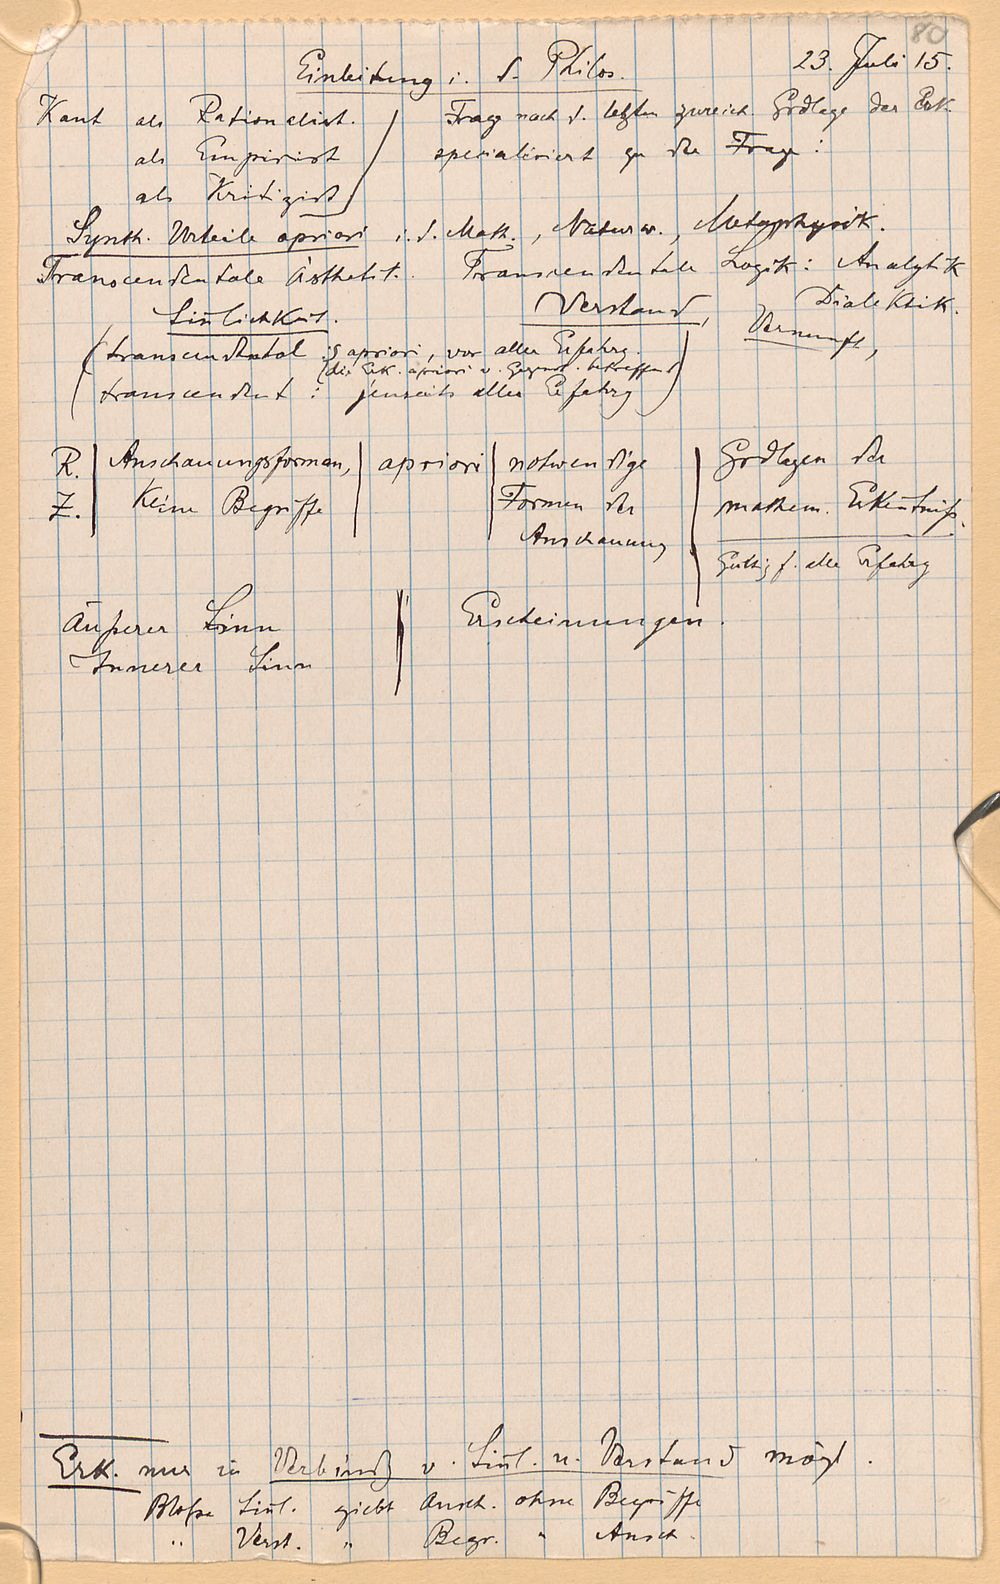 80
Einleitung i. d. Philos. 23. Juli 15.
Kant als Rationalist. Frage nach d. letzten zureich. Grdlage der Erk.
als Empirist spezialisiert zu der Frage:
als Kritizist
Synth. Urteile apriori i. d. Math., Naturw., Metaphysik.
Transcendentale Ästhetik. Transcendentale Logik: Analytik
Dialektik.
Sinlichkeit. Verstand, Vernunft,
(transcendental : apriori, vor aller Erfahrg.
(die Erk. apriori v. Gegenst. betreffend)
transcendent : jenseits aller Erfahrg)
R. | Anschauungsformen, | apriori | notwendige | Grdlagen der
Z. | Keine Begriffe | Formen der | mathem. Erkentniß.
Anschauung
Gültig f. alle Erfahrg
Äußerer Sinn | Erscheinungen.
Innerer Sinn
Erk. nur in Verbindg v. Sinl. u. Verstand mögl.
Bloße Sinl. giebt Ansch. ohne Begriffe
" Verst. " Begr. " Ansch.